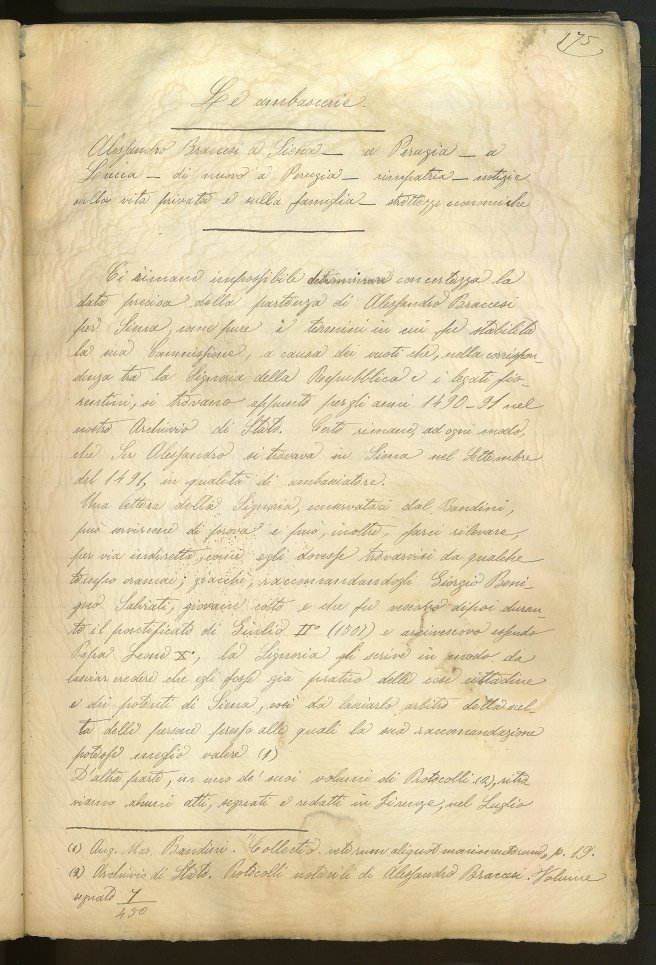 175
Le ambascerie.
Alessandro Braccesi a Siena — a Perugia — a
Lucca — di nuovo a Perugia — rimpatria — notizie
sulla vita privata e sulla famiglia — strettezze economiche
Ci rimane impossibile determinare con certezza la
data precisa della partenza di Alessandro Braccesi
per Siena, come pure i termini in cui fu stabilita
la sua Commissione, a causa dei vuoti che, nella corrispon-
denza tra la Signoria della Repubblica e i legati fio-
rentini, si trovano appunto per gli anni 1490-91 nel
nostro Archivio di Stato. Certo rimane, ad ogni modo,
che Ser Alessandro si trovava in Siena nel Settembre
del 1491, in qualità di ambasciatore.
Una lettera della Signoria, conservataci dal Bandini,
può servircene di prova e può, inoltre, farci rilevare,
per via indiretta, come egli dovesse trovarvisi da qualche
tempo oramai; giacchè, raccomandandogli Giorgio Beni-
gno Salviati, giovane colto e che fu vescovo dipoi duran-
te il pontificato di Giulio II° (1507) e arcivescovo essendo
Papa Leone X°, la Signoria gli scrive in modo da
lasciar credere che egli fosse già pratico delle cose cittadine
e dei potenti di Siena, così da lasciarlo arbitro della scel-
ta delle persone presso alle quali la sua raccomandazione
potesse meglio valere (1)
D'altra parte, in uno de' suoi volumi di Protocolli (2), ritro
viamo alcuni atti, segnati e redatti in Firenze, nel Luglio
(1) Ang. Mar. Bandini. "Collectio veterum aliquot monimentorum", p. 19.
(2) Archivio di Stato. Protocolli notarili di Alessandro Braccesi. Volume
segnato 7/450